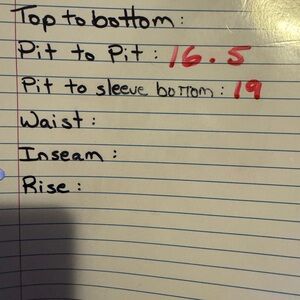 Top to bottom:
Pit to Pit: 16.5
Pit to sleeve bottom: 19
Waist:
Inseam:
Rise: